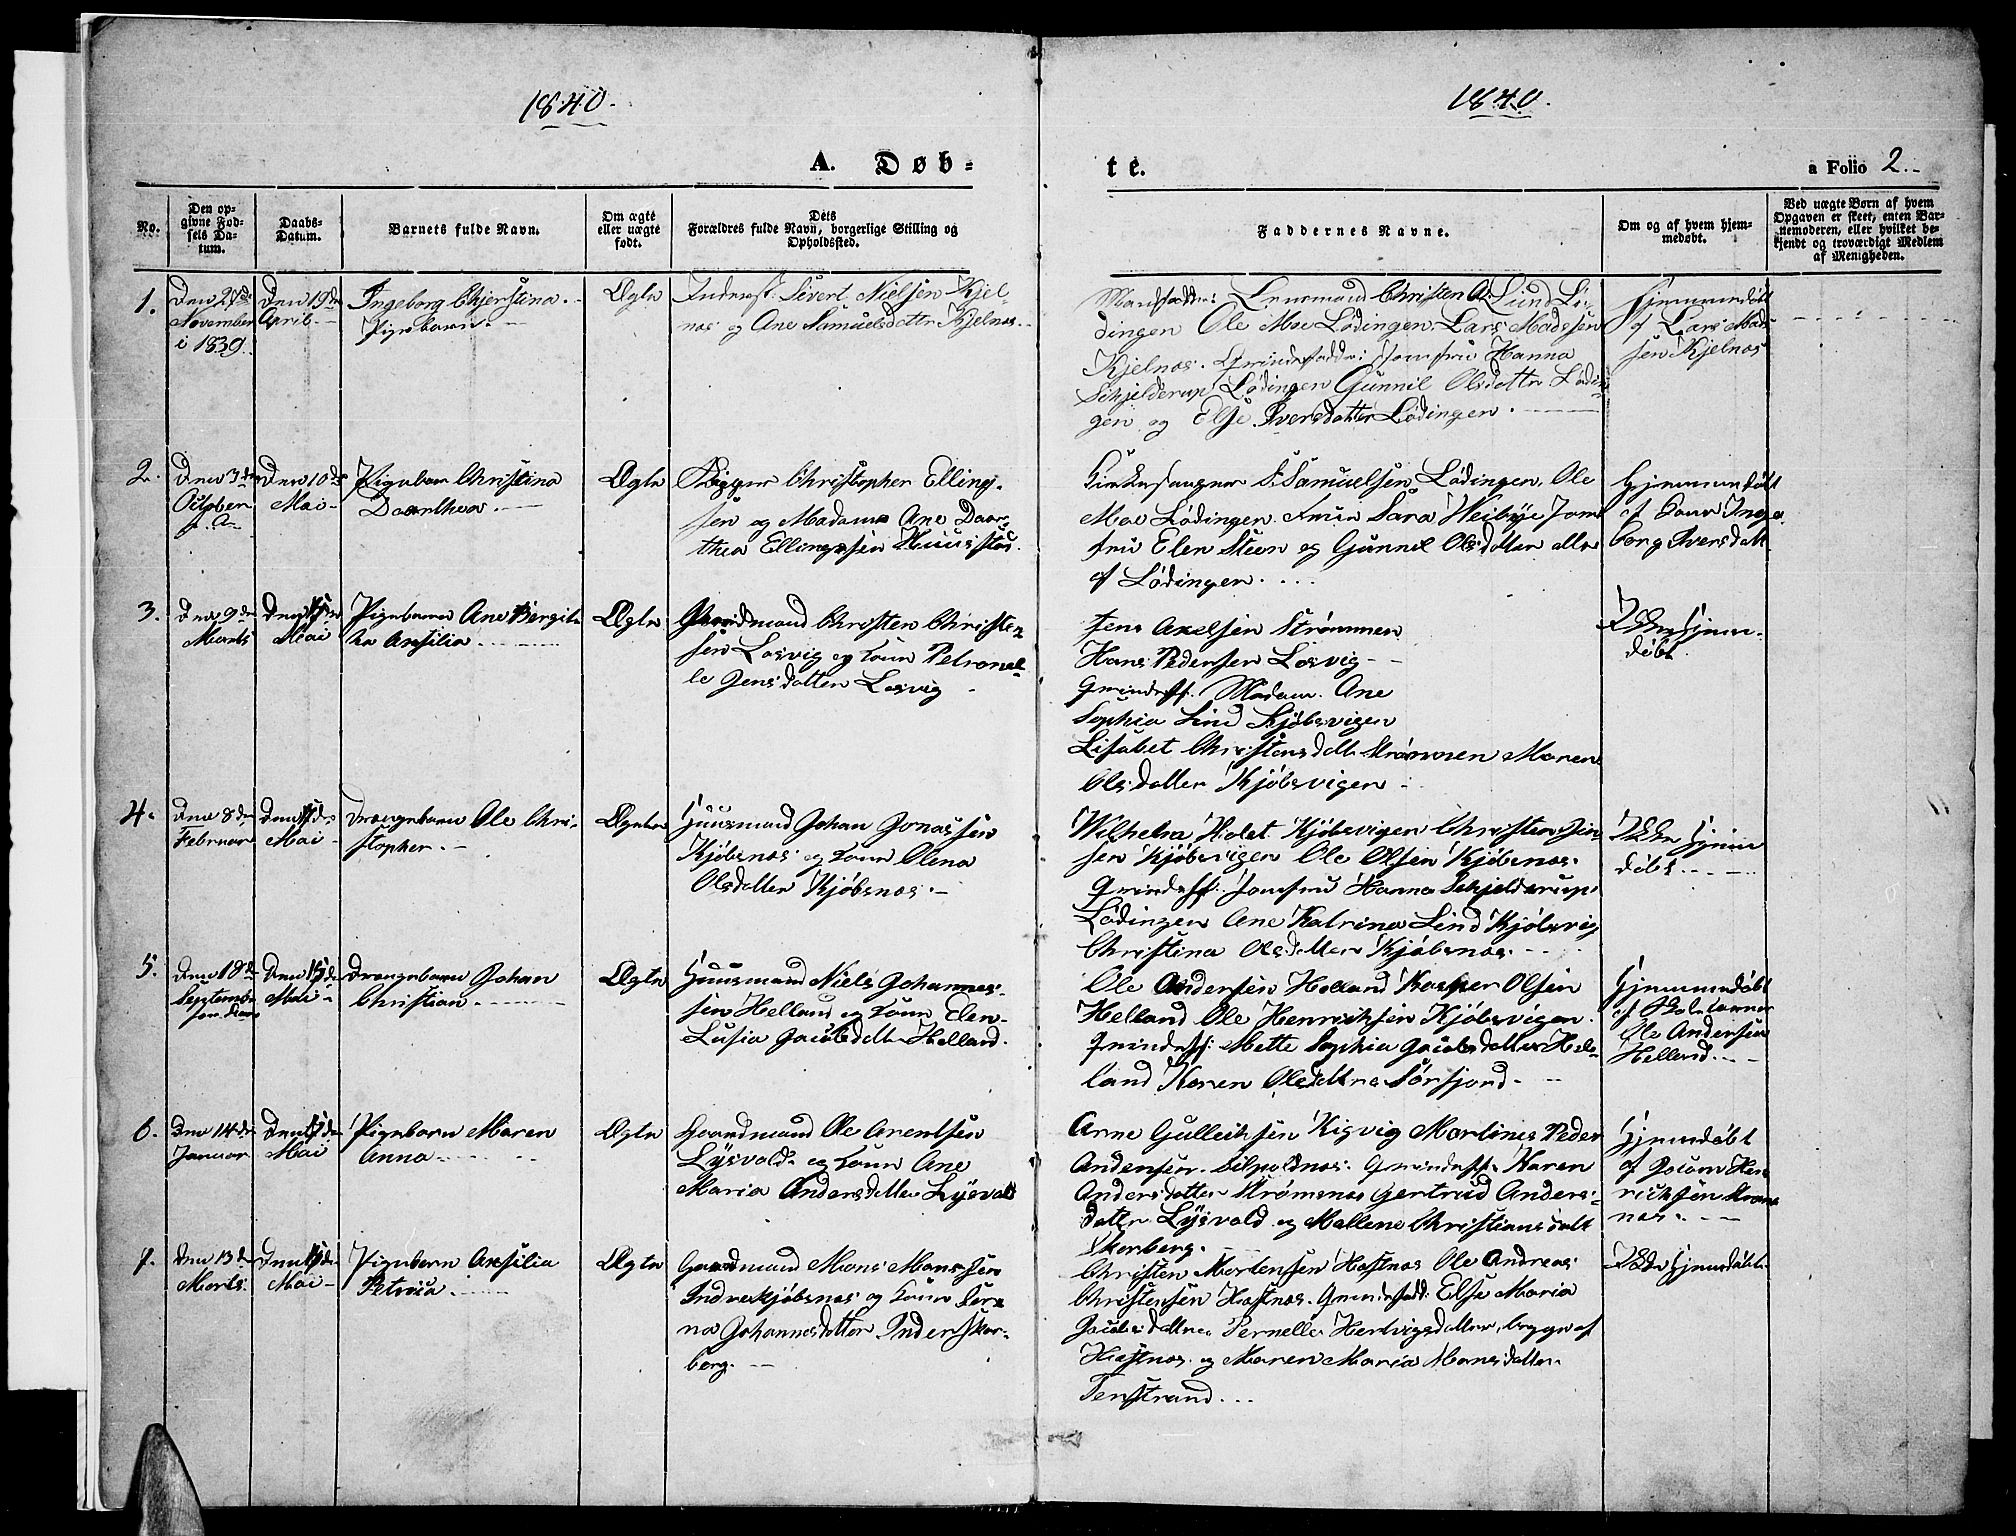 1840.
1840.
A. Døb=
te.
a Folio 2.
No.
Den op-
givne Fød-
sels Da-
tum.
Daabs-
Datum.
Barnets fulde Navn.
Om ægte
eller uægte
født.
Dets
Forældres fulde Navn, borgerlige Stilling og
Opholdssted.
Faddernes Navne.
Om og af hvem hjem-
medøbt.
Ved uægte Børn af hvem
Opgaven er skeet, enten Bar-
nemoderen, eller hvilket be-
kjendt og troværdigt Medlem
af Menigheden.
1.
November
i 1839.
Den 19de
April
Ingeborg Chjerstina
Pigebarn
Ægte
Sivert Nielsen Kjel-
nos og Ane Samuelsdatter Kjelnos
Lensmand Christen A. Lund Lö-
dingen Ole Moe Lödingen Lars Madssen
Kjelnos. Jomfru Hanna
Schjelderup Lödingen Gunnil Olsdatter Lödin-
gen og Else Iversdatter Lödingen.
Hjemmedöbt
af Lars Mads-
sen Kjelnos
2.
Den 3de
October
Den 10de
Mai
Pigebarn Christina
Daarthea
Ægte
Christopher Elling-
sen og Madame Ane Daar-
thea Ellingsen
Kirkesanger S. Samuelsen Lödingen, Ole
Moe Lödingen. Sara Heibye Jom-
fru Elen Steen og Gunnel Olsdatter alle
af Lödingen.
Hjemmedöbt
af Inge-
borg Iversdatt.
3.
Den 9de
Marts
Mai
Pigebarn Ane Bergit-
ha Axsilia
Ægte
Gaardmand Christen Christen-
sen Losvig og Kone Petronel-
le Jensdatter Losvig
Jens Axelsen Strömmen
Hans Pedersen Losvig
Madam Ane
Sophia Lind Kjöbsvigen
Lisabet Christensdatt. Strömmen Maren
Olsdatter Kjöbsvigen
Ikke Hjem-
döbt
4.
Den 8de
Februar
Mai
Drengebarn Ole Chri-
stopher.
Ægte
Huusmand Johan Jonassen
Kjöbsnos og Kone Olena
Olsdatter Kjöbsnos.
Holst Kjöbsvigen Christen Jen-
sen Kjöbsvigen Ole Olsen Kjöbsnos.
Jomfru Hanna Schjelderup
Lödingen Ane Katrina Lind Kjöbsvig
Christina Olsdatter Kjöbsnos.
Ikke Hjem
döbt
5.
Den 18de
Septemb.
Mai
Drengebarn Johan
Christian
Ægte
Huusmand Niels Johannes-
sen Helland og Kone Elen
Lusia Jacobsdatter Helland.
Ole Andersen Helland Kasper Olsen
Helland Ole Henriksen Kjöbsvigen.
Mette Sophia Jacobsdatter Hel-
land Karen Olsdatter Sörfjord.
Hjemmedöbt
af
Ole Andersen
Helland.
6.
Den 14de
Januar
Mai
Pigebarn Maren
Anna
Ægte
Gaardmand Ole Arentsen
Lysvold og Kone Ane
Maria Andersdatter Lysvold
Arne Gulleiksen Martines Peder
Andersen. Karen
Andersdatter Strömsnos Gertrud Anders-
datter Lysvold og Mallene Christiansdatt
Skorberg.
Hjemdöbt
af Jocum Hen-
richsen
nos.
7.
Den 13de
Marts.
Mai
Pigebarn Axsilia
Petrica
Ægte
Gaardmand Mons Monssen
Indrekjöbsnos og Kone Bere-
na Johannesdatter Inderskor-
berg.
Christen Mortensen Hostnos Ole Andreas
Christensen Hostnos. Else Maria
Jacobsdatter Pernelle Hertvigsdatter, begge af
Hostnos og Maren Maria Monsdatter
Tenstrand.
Ikke Hjemdöbt.